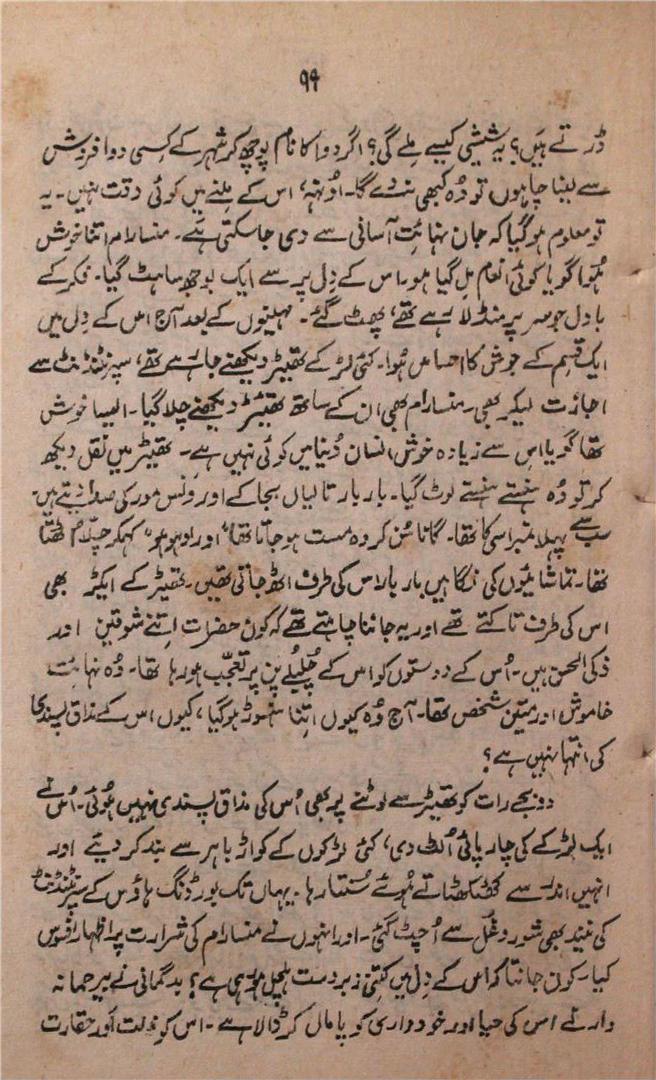 ۹۹
ڈرتے ہیں؟ یہ شیشی کیسے ملے گی؟ اگر دوا کا نام پوچھ کر شہر کے کسی دوا فروش
سے لینا چاہوں تو وُہ کبھی نہ دے گا۔ اُونہہ، اس کے ملنے میں کوئی دقت نہیں۔ یہ
تو معلوم ہو گیا کہ جان نہایت آسانی سے دی جا سکتی ہے۔ منسارام اتنا خوش
ہُوا گویا کوئی انعام مل گیا ہو۔ اس کے دِل پر سے ایک بوجھ سا ہٹ گیا۔ فکر کے
بادل جو سر پر منڈلا رہے تھے، پھٹ گئے۔ مہینوں کے بعد آج اس کے دِل میں
ایک قسم کے جوش کا احساس ہُوا۔ کئی لڑکے تھیٹر دیکھنے جا رہے تھے، سپرنٹنڈنٹ سے
اجازت لیکر بھی۔ منسارام بھی ان کے ساتھ تھیئٹر دیکھنے چلا گیا۔ ایسا خوش
تھا گویا اس سے زیادہ خوش انسان دُنیا میں کوئی نہیں ہے۔ تھیٹر میں نقل دیکھ
کر تو وُہ ہنستے ہنستے لوٹ گیا۔ بار بار تالیاں بجا کے اور ونس مور کی صدا دیتے ہیں
سب سے پہلا نمبر اسی کا تھا۔ گانا سُن کر وہ مست ہو جاتا تھا" اور اوہو ہو" کہکر چلّا اُٹھتا
تھا۔ تماشائیوں کی نگاہیں بار بار اس کی طرف اٹھ جاتی تھیں۔ تھیٹر کے ایکٹر بھی
اس کی طرف تاکتے تھے اور یہ جاننا چاہتے تھے کہ کون حضرات اتنے شوقین اور
ذکی الحس ہیں۔ اُس کے دوستوں کو اس کے چُلبلے پن پر تعجّب ہو رہا تھا۔ وُہ نہایت
خاموش اور متین شخص تھا۔ آج وُہ کیوں اتنا ہنسوڑ ہو گیا، کیوں اس کے مذاق پسندی
کی انتہا نہیں ہے؟
دو بجے رات کو تھیٹر سے لوٹنے پر بھی اُس کی مذاق پسندی نہیں ہُوئی۔ اُس نے
ایک لڑکے کی چارپائی اُلٹ دی، کئی لڑکوں کے کواڑ باہر سے بند کر دیتے اور
انہیں اندر سے کھٹکھٹاتے ہُوئے سُنتا رہا۔ یہاں تک بورڈنگ ہاؤس کے سپرنٹنڈنٹ
کی نیند بھی شور و غُل سے اُچٹ گئی۔ اور انہوں نے منسارام کی شرارت پر اظہار افسوس
کیا۔ کون جانتا کہ اس کے دِل میں کتنی زبردست ہلچل ہو رہی ہے؟ بدگمانی نے بیرحمانہ
وار نے اس کی حیا اور خودداری کو پامال کر ڈالا ہے۔ اس کو ذلت اور حقارت